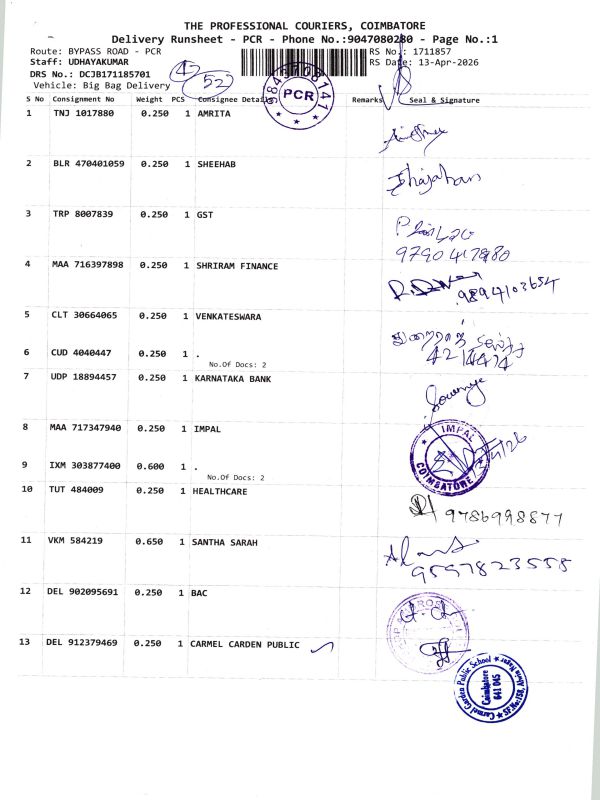 THE PROFESSIONAL COURIERS, COIMBATORE
Delivery Runsheet - PCR - Phone No.:9047080280 - Page No.:1
Route: BYPASS ROAD - PCR
RS No.: 1711857
Staff: UDHAYAKUMAR
RS Date: 13-Apr-2026
DRS No.: DCJB171185701
Vehicle: Big Bag Delivery
52
PCR
S No Consignment No Weight PCS Consignee Details Remarks Seal & Signature
1 TNJ 1017880 0.250 1 AMRITA
2 BLR 470401059 0.250 1 SHEEHAB
Shajahan
3 TRP 8007839 0.250 1 GST
4 MAA 716397898 0.250 1 SHRIRAM FINANCE
9894103654
5 CLT 30664065 0.250 1 VENKATESWARA
6 CUD 4040447 0.250 1 .
No.Of Docs: 2
7 UDP 18894457 0.250 1 KARNATAKA BANK
Sowmya
8 MAA 717347940 0.250 1 IMPAL
IMPAL
COIMBATORE
9 IXM 303877400 0.600 1 .
No.Of Docs: 2
10 TUT 484009 0.250 1 HEALTHCARE
9786998877
11 VKM 584219 0.650 1 SANTHA SARAH
9597823558
12 DEL 902095691 0.250 1 BAC
13 DEL 912379469 0.250 1 CARMEL CARDEN PUBLIC
Carmel Garden Public School
Coimbatore
641 045